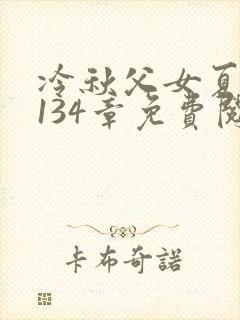 冷秋父女夏
134章免費閱
卡布奇諾